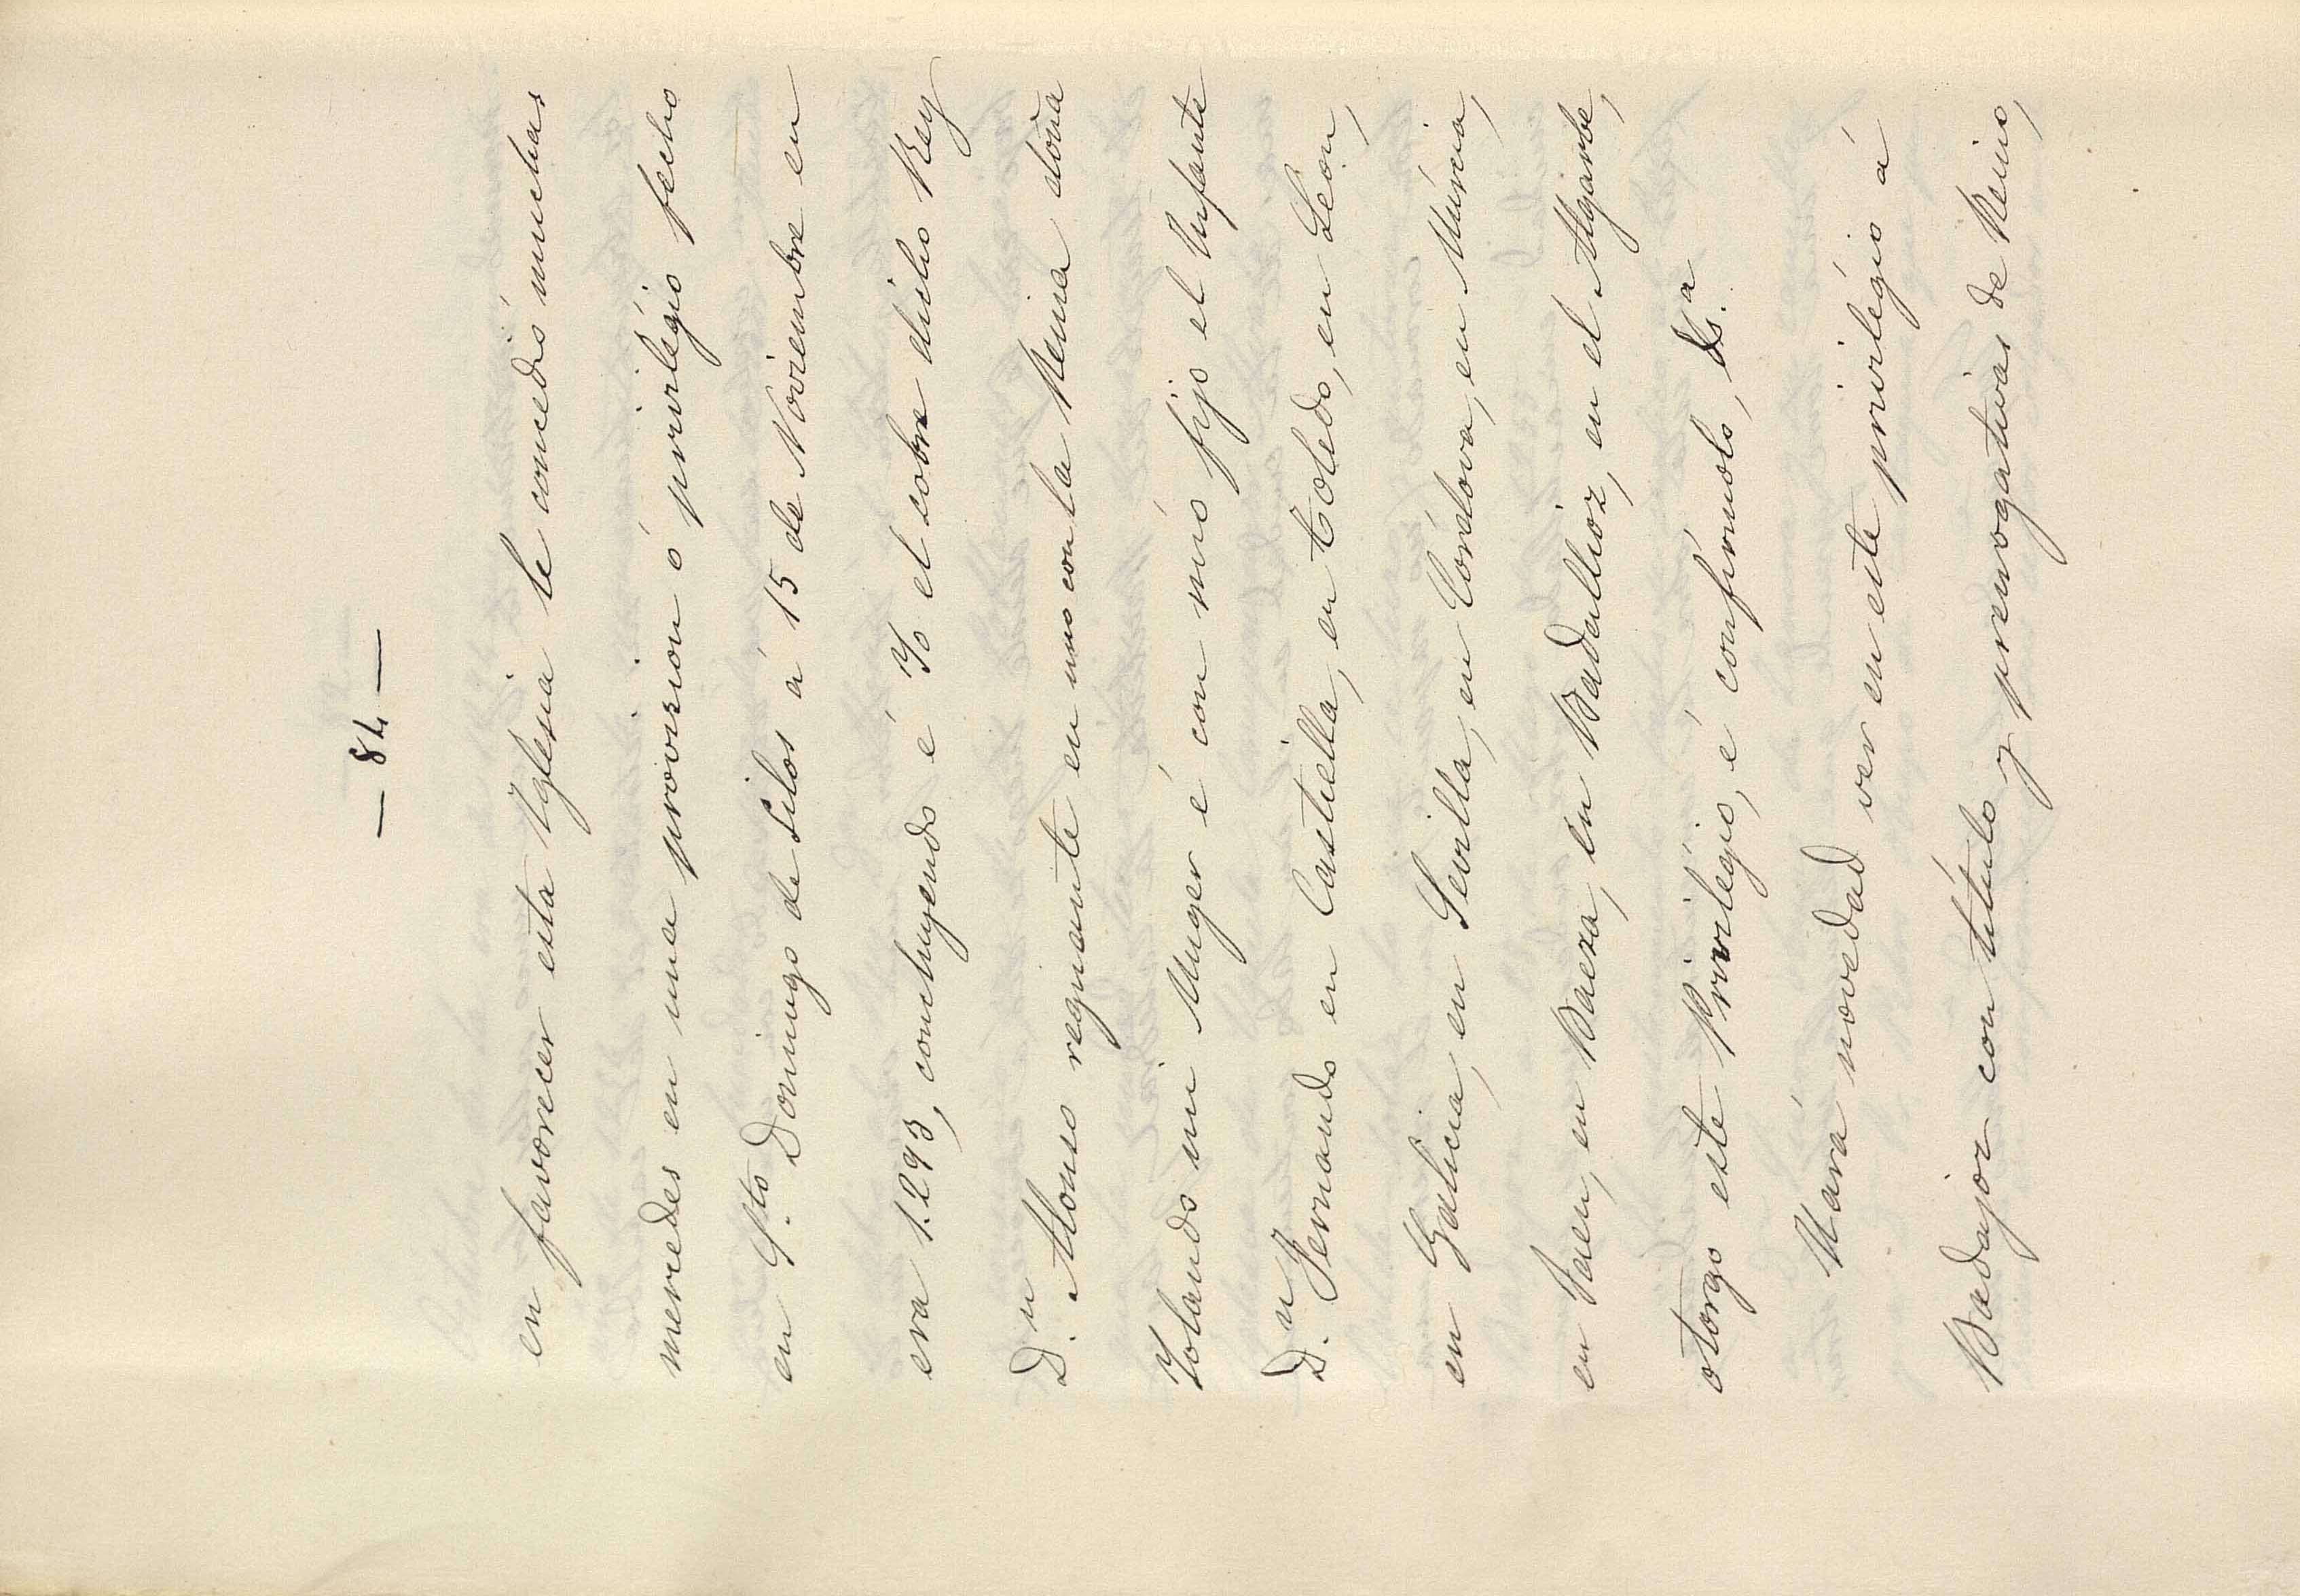 — 84 —
en favorecer esta Yglesia le concedió muchas
mercedes en una provision ó privilégio fecho
en S.to Domingo de Silos á 15 de Noviembre en
era 1.293, concluyendo é Yo el sobre dicho Rey
D.n Alonso regnante en uno con la Reina doña
Yolando mi Muger é con mio fijo el Infante
D.n Fernando en Castiella, en Toledo, en Leon,
en Galicia, en Sevilla, en Córdova, en Múrcia,
en Jaen, en Baeza, en Badallioz, en el Algarbe,
otorgo este Privilégio, é confírmolo, &.a
Hará novedad ver en este privilégio á
Badajoz con título y prerrogativas de Reino,